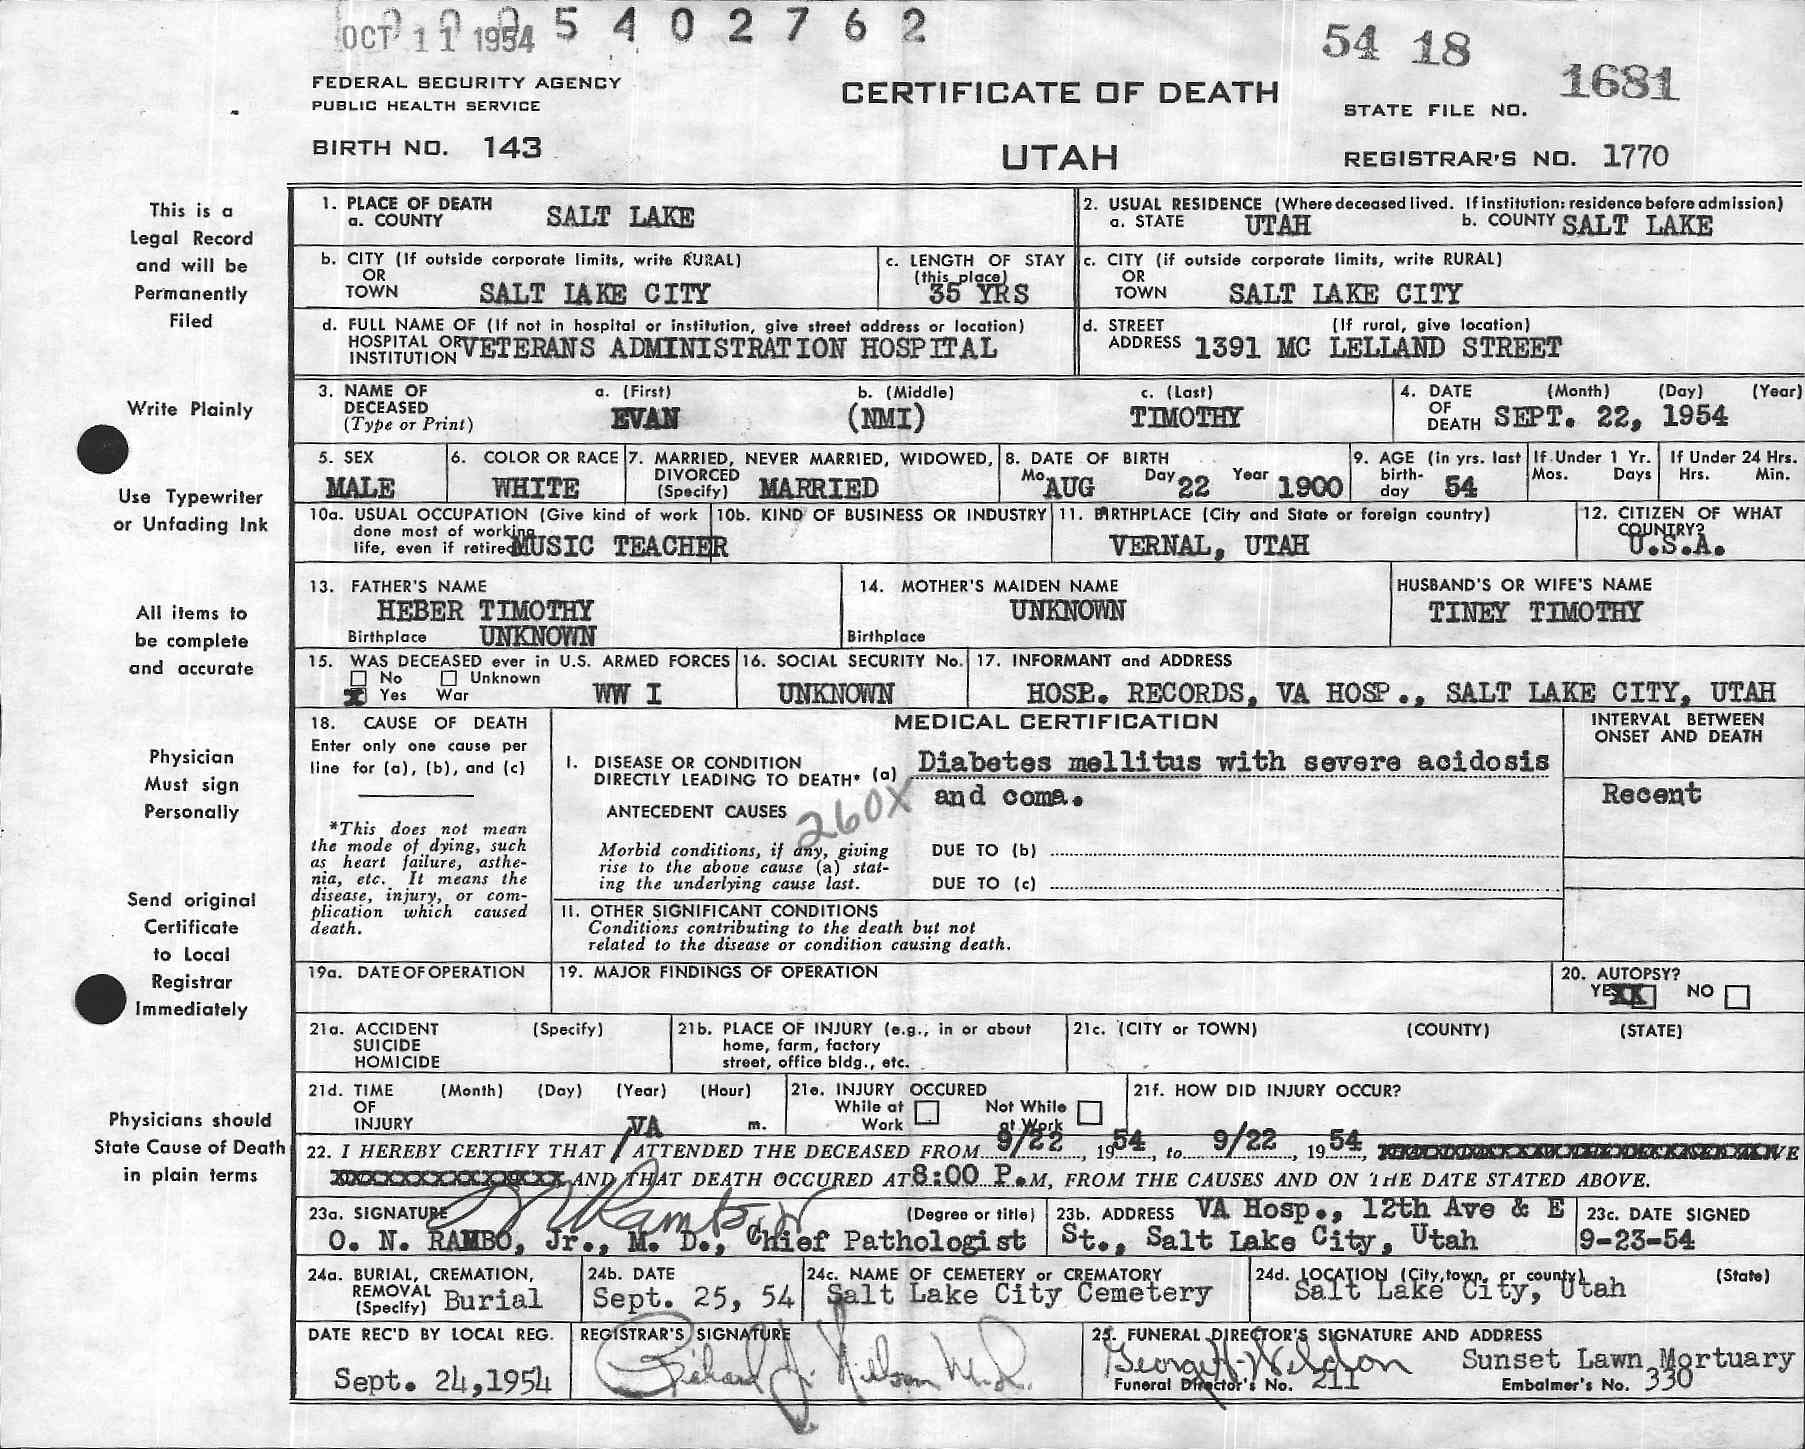 OCT 11 1954 5 4 0 2 7 6 2
54 18
1681
FEDERAL SECURITY AGENCY
PUBLIC HEALTH SERVICE
CERTIFICATE OF DEATH
STATE FILE NO.
BIRTH NO. 143
UTAH
REGISTRAR'S NO. 1770
This is a
Legal Record
and will be
Permanently
Filed
Write Plainly
Use Typewriter
or Unfading Ink
All items to
be complete
and accurate
Physician
Must sign
Personally
Send original
Certificate
to Local
Registrar
Immediately
Physicians should
State Cause of Death
in plain terms
1. PLACE OF DEATH
a. COUNTY SALT LAKE
2. USUAL RESIDENCE (Where deceased lived. If institution: residence before admission)
a. STATE UTAH b. COUNTY SALT LAKE
b. CITY (If outside corporate limits, write RURAL)
OR
TOWN SALT LAKE CITY
c. LENGTH OF STAY
(this place)
35 YRS
c. CITY (if outside corporate limits, write RURAL)
OR
TOWN SALT LAKE CITY
d. FULL NAME OF (If not in hospital or institution, give street address or location)
HOSPITAL OR
INSTITUTION VETERANS ADMINISTRATION HOSPITAL
d. STREET (If rural, give location)
ADDRESS 1391 MC LELLAND STREET
3. NAME OF
DECEASED
(Type or Print)
a. (First) b. (Middle) c. (Last)
EVAN (NMI) TIMOTHY
4. DATE (Month) (Day) (Year)
OF
DEATH SEPT. 22, 1954
5. SEX
MALE
6. COLOR OR RACE
WHITE
7. MARRIED, NEVER MARRIED, WIDOWED,
DIVORCED
(Specify) MARRIED
8. DATE OF BIRTH
Mo. AUG Day 22 Year 1900
9. AGE (in yrs. last
birth-
day 54
If Under 1 Yr.
Mos. Days
If Under 24 Hrs.
Hrs. Min.
10a. USUAL OCCUPATION (Give kind of work
done most of working
life, even if retired MUSIC TEACHER
10b. KIND OF BUSINESS OR INDUSTRY
11. BIRTHPLACE (City and State or foreign country)
VERNAL, UTAH
12. CITIZEN OF WHAT
COUNTRY?
U.S.A.
13. FATHER'S NAME
HEBER TIMOTHY
Birthplace UNKNOWN
14. MOTHER'S MAIDEN NAME
UNKNOWN
Birthplace
HUSBAND'S OR WIFE'S NAME
TINEY TIMOTHY
15. WAS DECEASED ever in U.S. ARMED FORCES
No Unknown
Yes War WW I
16. SOCIAL SECURITY No.
UNKNOWN
17. INFORMANT and ADDRESS
HOSP. RECORDS, VA HOSP., SALT LAKE CITY, UTAH
18. CAUSE OF DEATH
Enter only one cause per
line for (a), (b), and (c)
*This does not mean
the mode of dying, such
as heart failure, asthe-
nia, etc. It means the
disease, injury, or com-
plication which caused
death.
MEDICAL CERTIFICATION
INTERVAL BETWEEN
ONSET AND DEATH
I. DISEASE OR CONDITION
DIRECTLY LEADING TO DEATH* (a) Diabetes mellitus with severe acidosis
and coma.
Recent
ANTECEDENT CAUSES
260X
Morbid conditions, if any, giving
rise to the above cause (a) stat-
ing the underlying cause last.
DUE TO (b)
DUE TO (c)
II. OTHER SIGNIFICANT CONDITIONS
Conditions contributing to the death but not
related to the disease or condition causing death.
19a. DATE OF OPERATION
19. MAJOR FINDINGS OF OPERATION
20. AUTOPSY?
YES XX NO
21a. ACCIDENT (Specify)
SUICIDE
HOMICIDE
21b. PLACE OF INJURY (e.g., in or about
home, farm, factory
street, office bldg., etc.
21c. (CITY or TOWN) (COUNTY) (STATE)
21d. TIME (Month) (Day) (Year) (Hour)
OF
INJURY m.
21e. INJURY OCCURED
While at Not While
Work at Work
21f. HOW DID INJURY OCCUR?
VA
22. I HEREBY CERTIFY THAT / ATTENDED THE DECEASED FROM 9/22, 1954, to 9/22, 1954,
AND THAT DEATH OCCURED AT 8:00 P.M, FROM THE CAUSES AND ON THE DATE STATED ABOVE.
23a. SIGNATURE O N Rambo Jr (Degree or title)
O. N. RAMBO, Jr., M. D., Chief Pathologist
23b. ADDRESS VA Hosp., 12th Ave & E
St., Salt Lake City, Utah
23c. DATE SIGNED
9-23-54
24a. BURIAL, CREMATION,
REMOVAL
(Specify) Burial
24b. DATE
Sept. 25, 54
24c. NAME OF CEMETERY or CREMATORY
Salt Lake City Cemetery
24d. LOCATION (City, town, or county) (State)
Salt Lake City, Utah
DATE REC'D BY LOCAL REG.
Sept. 24,1954
REGISTRAR'S SIGNATURE
Richard J. Nielson M.D.
25. FUNERAL DIRECTOR'S SIGNATURE AND ADDRESS
George H. Weldon Sunset Lawn Mortuary
Funeral Director's No. 211 Embalmer's No. 330